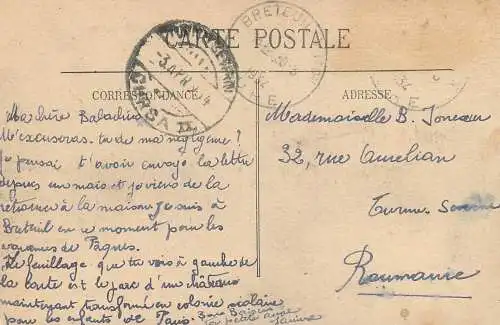 CARTE POSTALE
BRETEUIL
CORRESPONDANCE
ADRESSE
Ma chère Baladine
M'excuseras-tu de ma négligence?
Je pensai t'avoir envoyé la lettre
depuis un mois et je viens de la
retrouver à la maison je suis à
Breteuil en ce moment pour les
vacances de Pâques.
Le feuillage que tu vois à gauche de
la carte est le parc d'un château
maintenant transformé en colonie scolaire
pour les enfants de Paris. Bons Baisers
ta petite amie
Mademoiselle B. Jonescu
32, rue Aurelian
Turnu-Severin
Roumanie